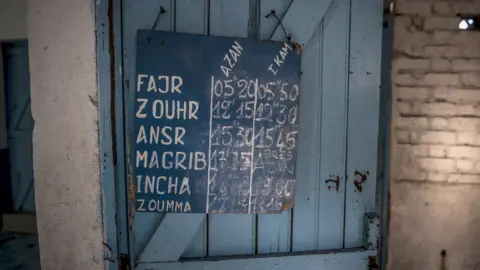 AZAN IKAM
FAJR 05 20 05 50
ZOUHR 12 15 12 30
ANSR 15 30 15 45
MAGRIB
INCHA
ZOUMMA